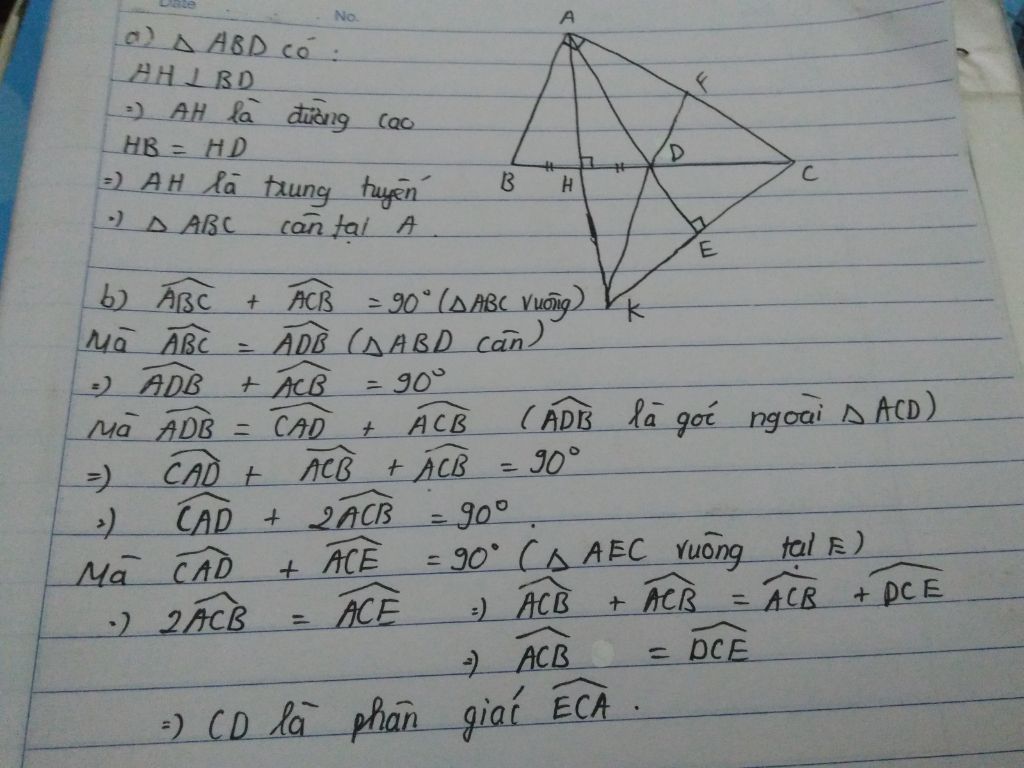 Date
No.
a) △ ABD có :
AH ⊥ BD
=) AH là đường cao
HB = HD
=) AH là trung tuyến
=) △ ABC cân tại A .
A
F
B
H
D
C
E
K
b) \widehat{ABC} + \widehat{ACB} = 90° (△ ABC vuông)
Mà \widehat{ABC} = \widehat{ADB} (△ ABD cân)
=) \widehat{ADB} + \widehat{ACB} = 90°
Mà \widehat{ADB} = \widehat{CAD} + \widehat{ACB} (\widehat{ADB} là góc ngoài △ ACD)
=) \widehat{CAD} + \widehat{ACB} + \widehat{ACB} = 90°
=) \widehat{CAD} + 2\widehat{ACB} = 90° .
Mà \widehat{CAD} + \widehat{ACE} = 90° (△ AEC vuông tại E)
=) 2\widehat{ACB} = \widehat{ACE} =) \widehat{ACB} + \widehat{ACB} = \widehat{ACB} + \widehat{DCE}
=) \widehat{ACB} = \widehat{DCE}
=) CD là phân giác \widehat{ECA} .